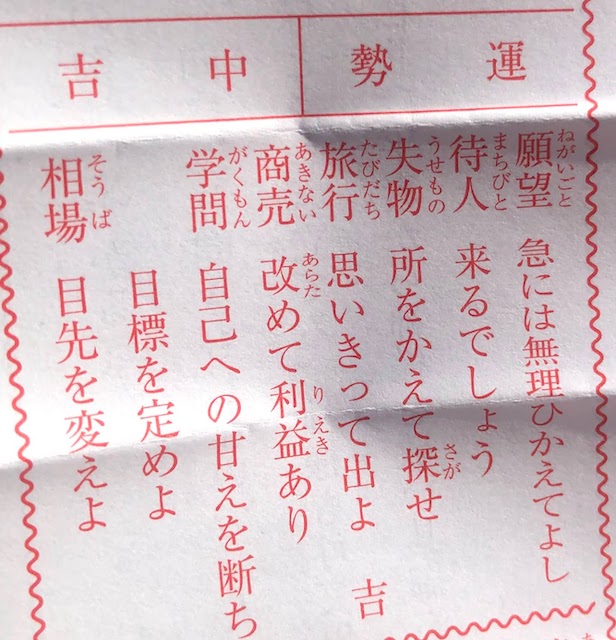 運勢
中吉
願望 急には無理ひかえてよし
待人 来るでしょう
失物 所をかえて探せ
旅行 思いきって出よ 吉
商売 改めて利益あり
学問 自己への甘えを断ち
目標を定めよ
相場 目先を変えよ
ねがいごと
まちびと
うせもの
さが
たびだち
あきない
あらた
りえき
がくもん
そうば